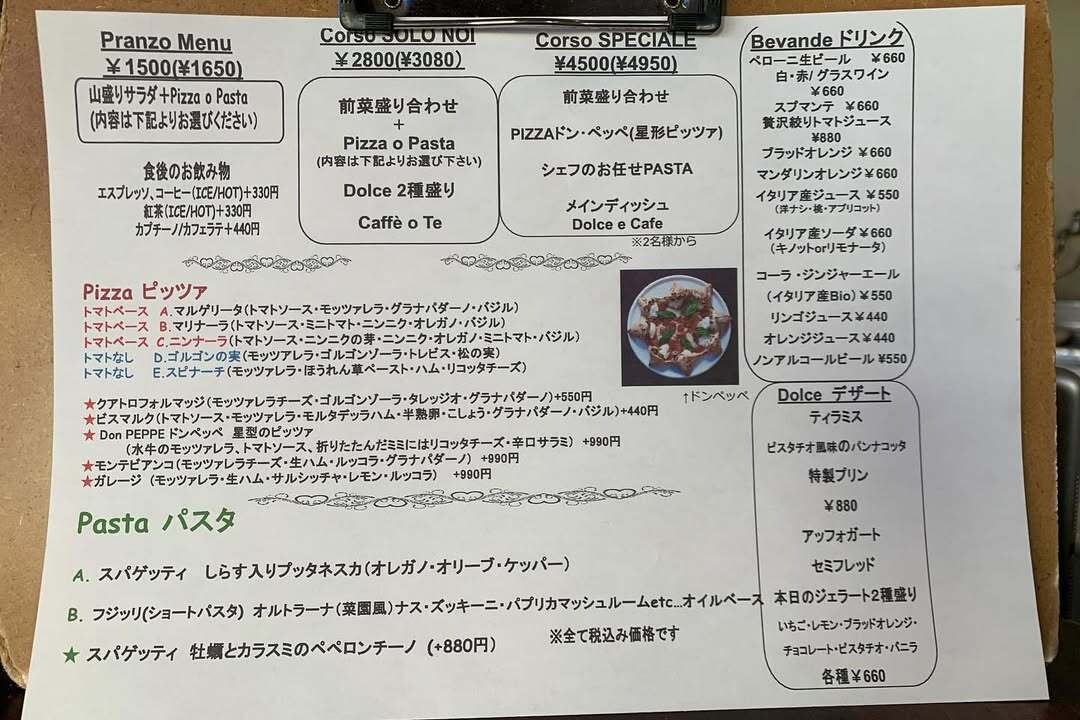 Pranzo Menu
¥1500(¥1650)
山盛りサラダ+Pizza o Pasta
(内容は下記よりお選びください)
食後のお飲み物
エスプレッソ、コーヒー(ICE/HOT)+330円
紅茶(ICE/HOT)+330円
カプチーノ/カフェラテ+440円
Corso SOLO NOI
¥2800(¥3080)
前菜盛り合わせ
+
Pizza o Pasta
(内容は下記よりお選び下さい)
Dolce 2種盛り
Caffè o Te
Corso SPECIALE
¥4500(¥4950)
前菜盛り合わせ
PIZZAドン・ペッペ(星形ピッツァ)
シェフのお任せPASTA
メインディッシュ
Dolce e Cafe
※2名様から
Bevande ドリンク
ペローニ生ビール ¥660
白・赤/ グラスワイン
¥660
スプマンテ ¥660
贅沢絞りトマトジュース
¥880
ブラッドオレンジ ¥660
マンダリンオレンジ¥660
イタリア産ジュース ¥550
(洋ナシ・桃・アプリコット)
イタリア産ソーダ¥660
(キノットorリモナータ)
コーラ・ジンジャーエール
(イタリア産Bio) ¥550
リンゴジュース¥440
オレンジジュース¥440
ノンアルコールビール ¥550
Pizza ピッツァ
トマトベース A.マルゲリータ(トマトソース・モッツァレラ・グラナパダーノ・バジル)
トマトベース B.マリナーラ(トマトソース・ミニトマト・ニンニク・オレガノ・バジル)
トマトベース C.ニンナーラ(トマトソース・ニンニクの芽・ニンニク・オレガノ・ミニトマト・バジル)
トマトなし D.ゴルゴンの実(モッツアレラ・ゴルゴンゾーラ・トレビス・松の実)
トマトなし E.スピナーチ(モッツァレラ・ほうれん草ペースト・ハム・リコッタチーズ)
↑ドンペッペ
★クアトロフォルマッジ(モッツァレラチーズ・ゴルゴンゾーラ・タレッジオ・グラナパダーノ)+550円
★ビスマルク(トマトソース・モッツァレラ・モルタデッラハム・半熟卵・こしょう・グラナパダーノ・バジル)+440円
★ Don PEPPE ドンペッペ 星型のピッツァ
(水牛のモッツァレラ、トマトソース、折りたたんだミミにはリコッタチーズ・辛口サラミ) +990円
★モンテビアンコ(モッツァレラチーズ・生ハム・ルッコラ・グラナパダーノ) +990円
★ガレージ (モッツァレラ・生ハム・サルシッチャ・レモン・ルッコラ) +990円
Pasta パスタ
A. スパゲッティ しらす入りプッタネスカ(オレガノ・オリーブ・ケッパー)
B. フジッリ(ショートパスタ) オルトラーナ(菜園風)ナス・ズッキーニ・パプリカマッシュルームetc...オイルベース
★ スパゲッティ 牡蠣とカラスミのペペロンチーノ (+880円)
※全て税込み価格です
Dolce デザート
ティラミス
ピスタチオ風味のパンナコッタ
特製プリン
¥880
アッフォガート
セミフレッド
本日のジェラート2種盛り
いちご・レモン・ブラッドオレンジ・
チョコレート・ピスタチオ・バニラ
各種¥660